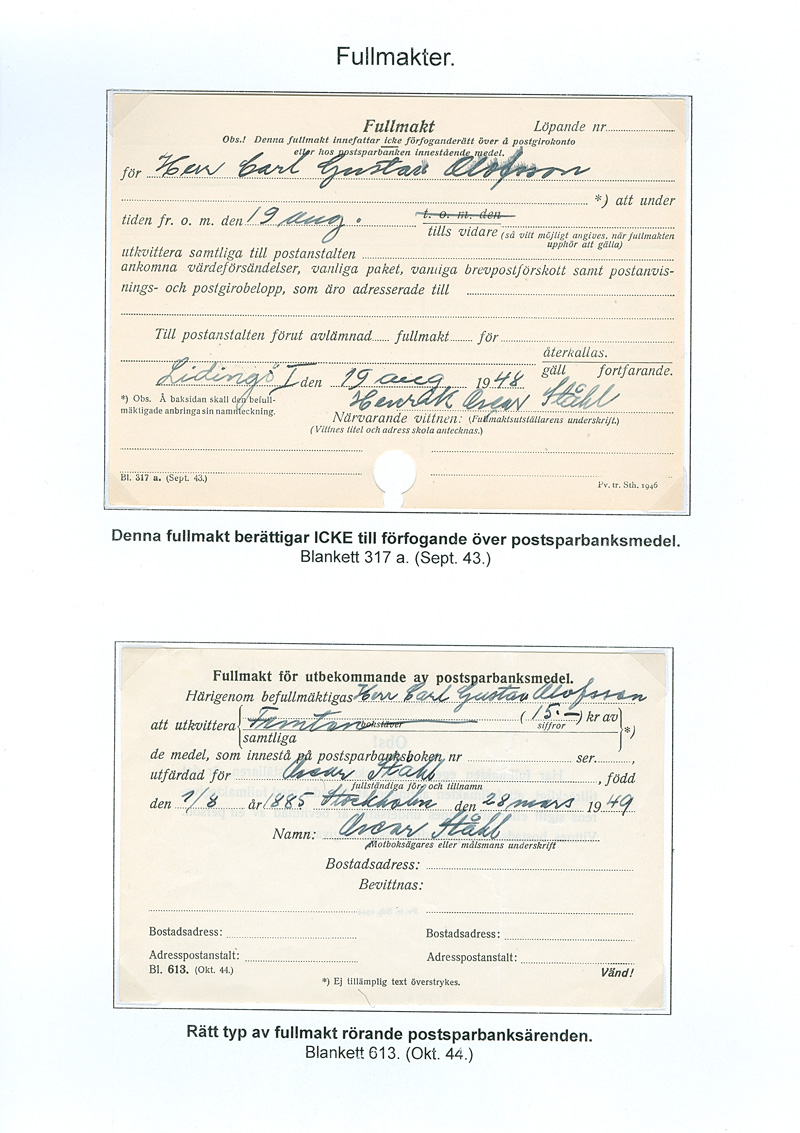 Fullmakter.
Fullmakt Löpande nr
Obs.! Denna fullmakt innefattar icke förfoganderätt över å postgirokonto
eller hos postsparbanken innestående medel.
för Herr Carl Gustav Olofsson
*) att under
tiden fr. o. m. den 19 aug. t. o. m. den
tills vidare (så vitt möjligt angives, när fullmakten
upphör att gälla)
utkvittera samtliga till postanstalten
ankomna värdeförsändelser, vanliga paket, vanliga brevpostförskott samt postanvis-
nings- och postgirobelopp, som äro adresserade till
Till postanstalten förut avlämnad fullmakt för
återkallas.
gäll fortfarande.
Lidingö 1 den 19 aug 1948
Henrik Oscar Ståhl
*) Obs. Å baksidan skall den befull-
mäktigade anbringa sin namnteckning.
Närvarande vittnen: (Fullmaktsutställarens underskrift.)
(Vittnes titel och adress skola antecknas.)
Bl. 317 a. (Sept. 43.)
Pv. tr. Sth. 1946
Denna fullmakt berättigar ICKE till förfogande över postsparbanksmedel.
Blankett 317 a. (Sept. 43.)
Fullmakt för utbekommande av postsparbanksmedel.
Härigenom befullmäktigas Herr Carl Gustav Olofsson
att utkvittera Femton bokstäver (15.-) kr av *)
siffror
samtliga
de medel, som innestå på postsparbanksboken nr ser. ,
utfärdad för Oscar Ståhl , född
fullständiga för- och tillnamn
den 1/8 år 1885 Stockholm den 28 mars 1949
Namn: Oscar Ståhl
Motboksägares eller målsmans underskrift
Bostadsadress:
Bevittnas:
Bostadsadress: Bostadsadress:
Adresspostanstalt: Adresspostanstalt:
Bl. 613. (Okt. 44.) Vänd!
*) Ej tillämplig text överstrykes.
Rätt typ av fullmakt rörande postsparbanksärenden.
Blankett 613. (Okt. 44.)